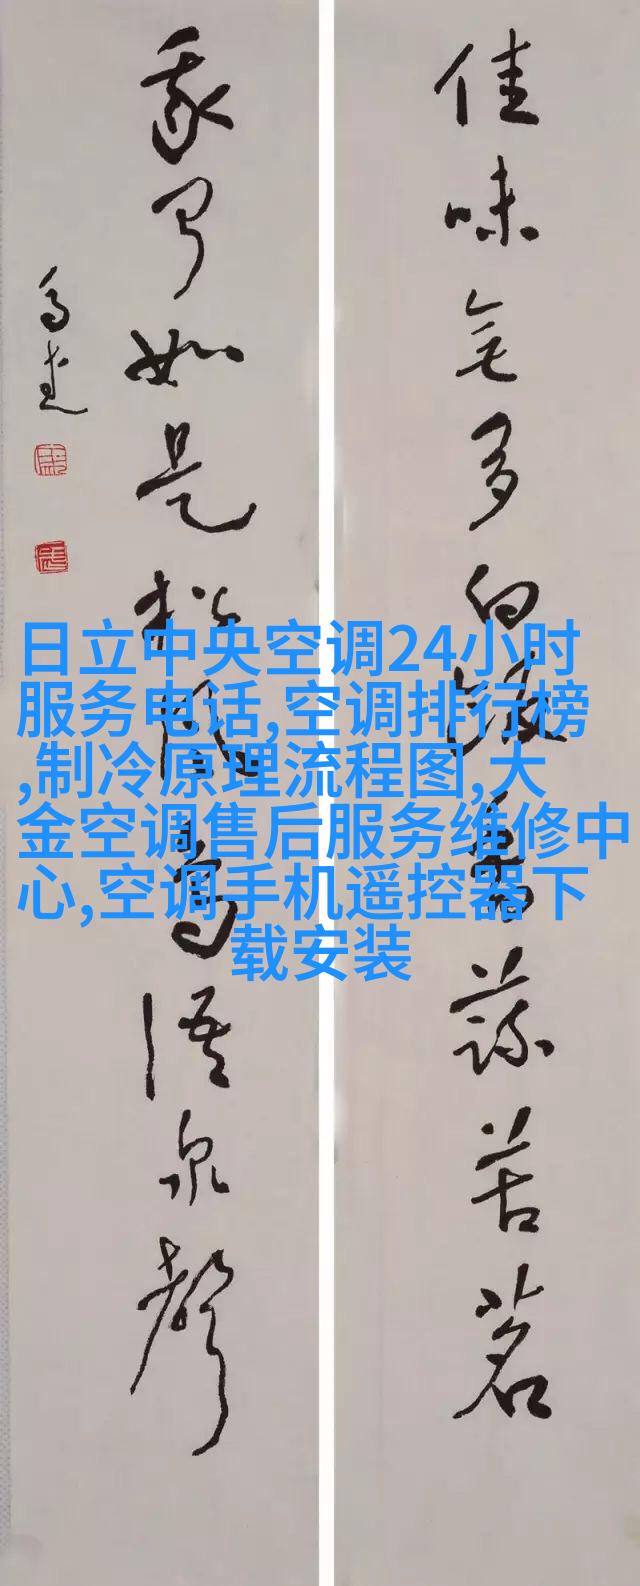 佳味無多白飯香蔬苦茗
我聞如是松風鳥語泉聲
日立中央空调24小时
服务电话,空调排行榜
,制冷原理流程图,大
金空调售后服务维修中
心,空调手机遥控器下
载安装